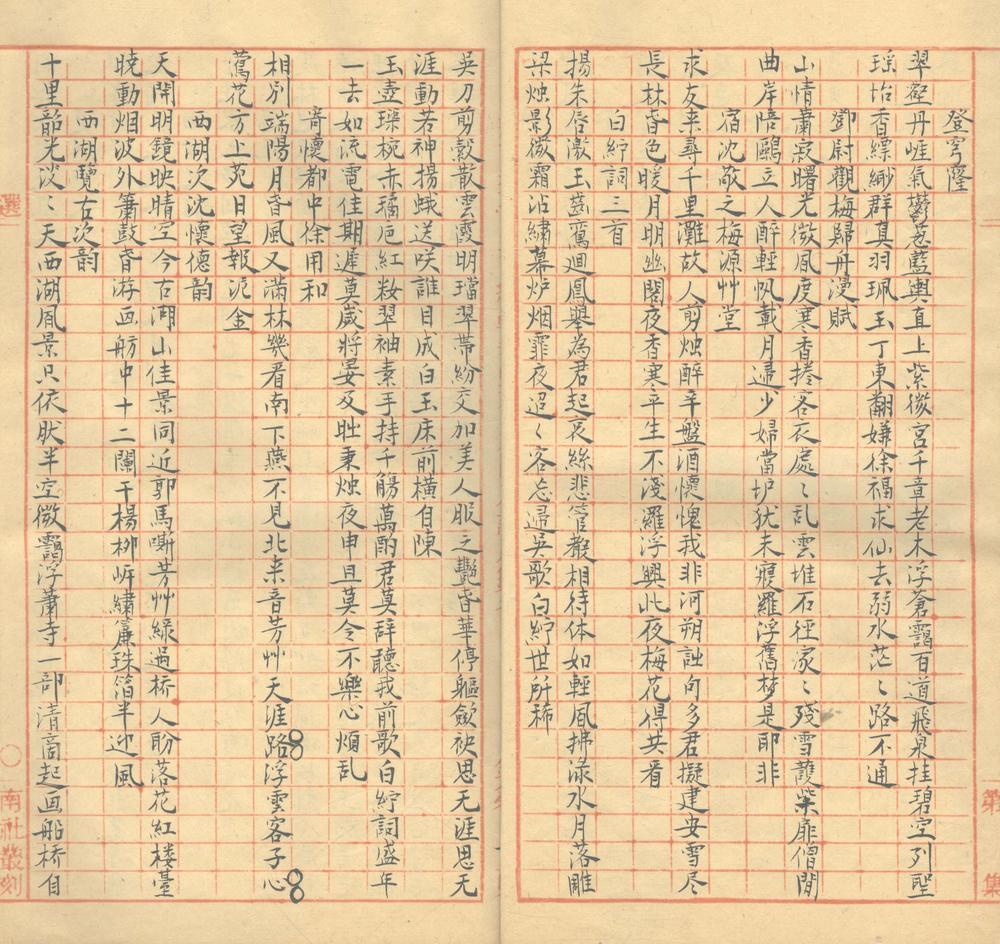 登穹窿
翠壑丹崕氣鬱葱藍輿直上紫微宮千章老木浮蒼靄百道飛泉挂碧空列聖
瑶坮香縹緲群真羽珮玉丁東翻嫌徐福求仙去弱水茫〻路不通
鄧尉觀梅歸舟漫賦
山情肅寂曙光微風度寒香捲客衣處〻乱雲堆石徑家〻残雪護柴扉僧閒
曲岸陪鷗立人醉輕帆載月歸少婦當垆犹未寢羅浮舊梦是耶非
宿沈敬之梅源艸堂
求友来尋千里灘故人剪烛醉辛盤酒懷愧我非河朔詩句多君擬建安雪尽
長林昏色暖月明幽閣夜香寒平生不淺羅浮興此夜梅花得共看
白紵詞三首
揚朱唇激玉齒鸞迴鳳舉為君起哀絲悲管教相待体如輕風拂渌水月落雕
梁烛影微霜沾繡幕炉烟霏夜迢〻客忘歸吳歌白紵世所稀
吳刀剪縠散雲霞明璫翠帶紛交加美人服之艷昏華停軀歛袂思无涯思无
涯動若神揚蛾送咲誰目成白玉床前橫自陳
玉壺琛椀赤璚卮紅妝翠袖素手持千觴萬酌君莫辞聽我前歌白紵詞盛年
一去如流電佳期遲莫歲將晏及時秉烛夜申旦莫令不樂心煩乱
旹懷都中徐用和
相別端陽月昏風又滿林幾看南下燕不見北来音芳艸天涯路浮雲客子心
鶯花方上苑日望報泥金
西湖次沈懷德韵
天開明鏡映晴空今古湖山佳景同近郭馬嘶芳艸緑過桥人盼落花紅楼臺
曉動烟波外簫鼓昏游画舫中十二闌干楊柳岍繡簾珠箔半迎風
西湖覽古次韵
十里韶光淡〻天西湖風景只依肰半空微靄浮蕭寺一部清商起画船桥自
選
〇
南社叢刻
第
集